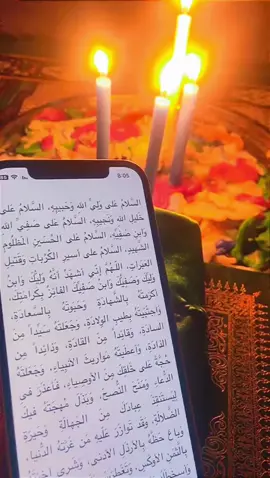 8:05
السَّلامُ عَلى وَلِيِّ اللهِ وَحَبيبِهِ، السَّلامُ عَلى
خَليلِ اللهِ وَنَجيبِهِ، السَّلامُ عَلى صَفِيِّ اللهِ
وَابْنِ صَفِيِّهِ، السَّلامُ عَلى الْحُسَيْنِ الْمَظْلُومِ
الشَّهيدِ، السَّلامُ عَلى اَسيرِ الْكُرُباتِ وَقَتيلِ
الْعَبَراتِ، اَللّهُمَّ اِنّي اَشْهَدُ اَنَّهُ وَلِيُّكَ وَابْنُ
وَلِيِّكَ وَصَفِيُّكَ وَابْنُ صَفِيِّكَ الْفائِزُ بِكَرامَتِكَ،
اَكْرَمْتَهُ بِالشَّهادَةِ وَحَبَوْتَهُ بِالسَّعادَةِ،
وَاجْتَبَيْتَهُ بِطيبِ الْوِلادَةِ، وَجَعَلْتَهُ سَيِّداً مِنَ
السادَةِ، وَقائِداً مِنَ الْقادَةِ، وَذائِداً مِنَ
الْذادَةِ، وَاَعْطَيْتَهُ مَواريثَ الاَْنْبِياءِ، وَجَعَلْتَهُ
حُجَّةً عَلى خَلْقِكَ مِنَ الاَْوْصِياءِ، فَاَعْذَرَ فىِ
الدُّعاءِ وَمَنَحَ النُّصْحَ، وَبَذَلَ مُهْجَتَهُ فيكَ
لِيَسْتَنْقِذَ عِبادَكَ مِنَ الْجَهالَةِ وَحَيْرَةِ
الضَّلالَةِ، وَقَدْ تَوازَرَ عَلَيْهِ مَنْ غَرَّتْهُ الدُّنْيا،
وَباعَ حَظَّهُ بِالاَْرْذَلِ الاَْدْنى، وَشَرى آخِرَتَهُ
بِالَّثمَنِ الاَْوْكَسِ، وَتَغَطْرَسَ